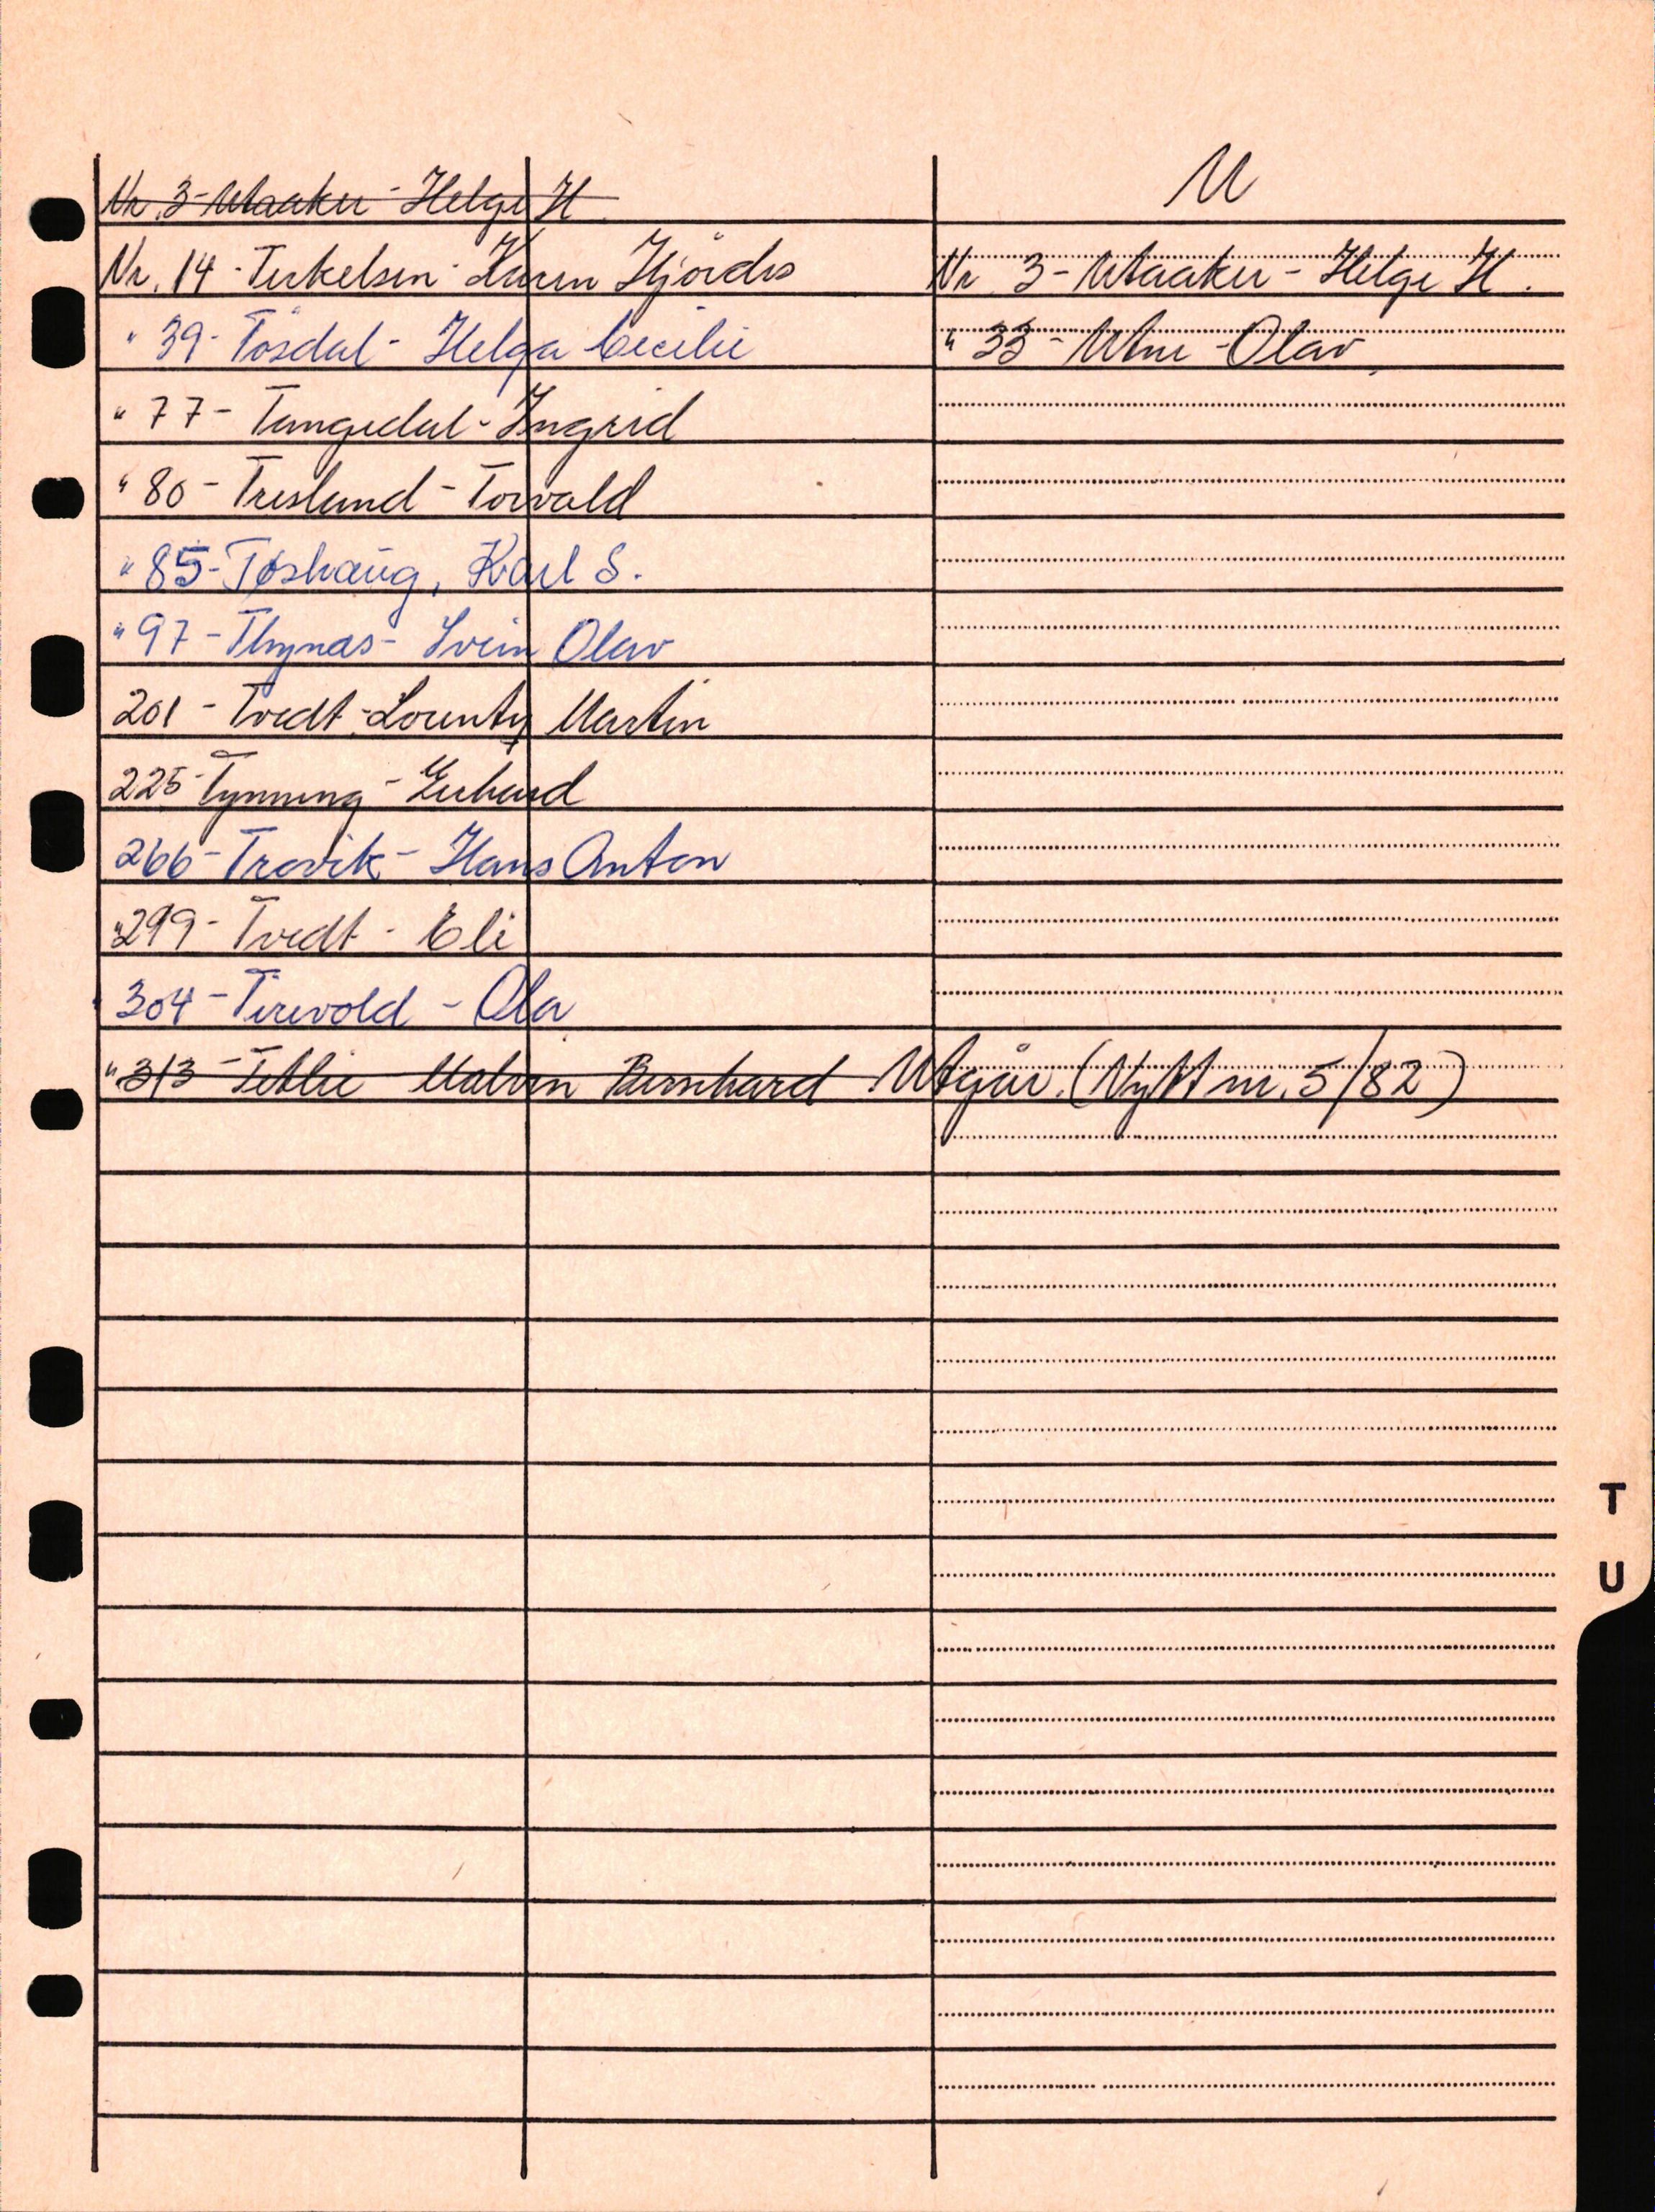 Nr. 3 - Utaaker - Helge H
U
Nr. 14 - Terkelsen - Karen Hjørdis
Nr 3 - Utaaker - Helge H.
" 39 - Tøsdal - Helga Cecilie
" 33 - Utne - Olav
" 77 - Tangedal - Ingrid
" 80 - Tresland - Torvald
" 85 - Toshaug, Karl S.
" 97 - Thynas - Svein Olav
201 - Tvedt - Lorenty Martin
225 - Tynning - Gerhard
266 - Trovik - Hans Anton
" 299 - Tvedt - Eli
" 304 - Tirevold - Ola
" 313 - Tetlie Malvin Bernhard Utgår. (Nytt nr. 5/82)
T
U